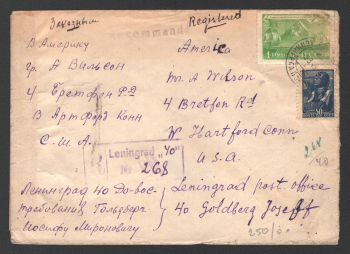 Заказным
Registered
Recommandé
В Америку
гр. А Вильсон
4 Бретфон Рд
В Артфорд Конн
С. Ш. А.
America
Mr. A Wilson
4 Bretfon Rd
W. Hartford Conn
U.S.A.
Leningrad "40"
№ 268
Ленинград 40 До-вос-
требования Гольдберг
Иосифу Мироновичу
Leningrad post office
40 Goldberg Joseff
268
250/0